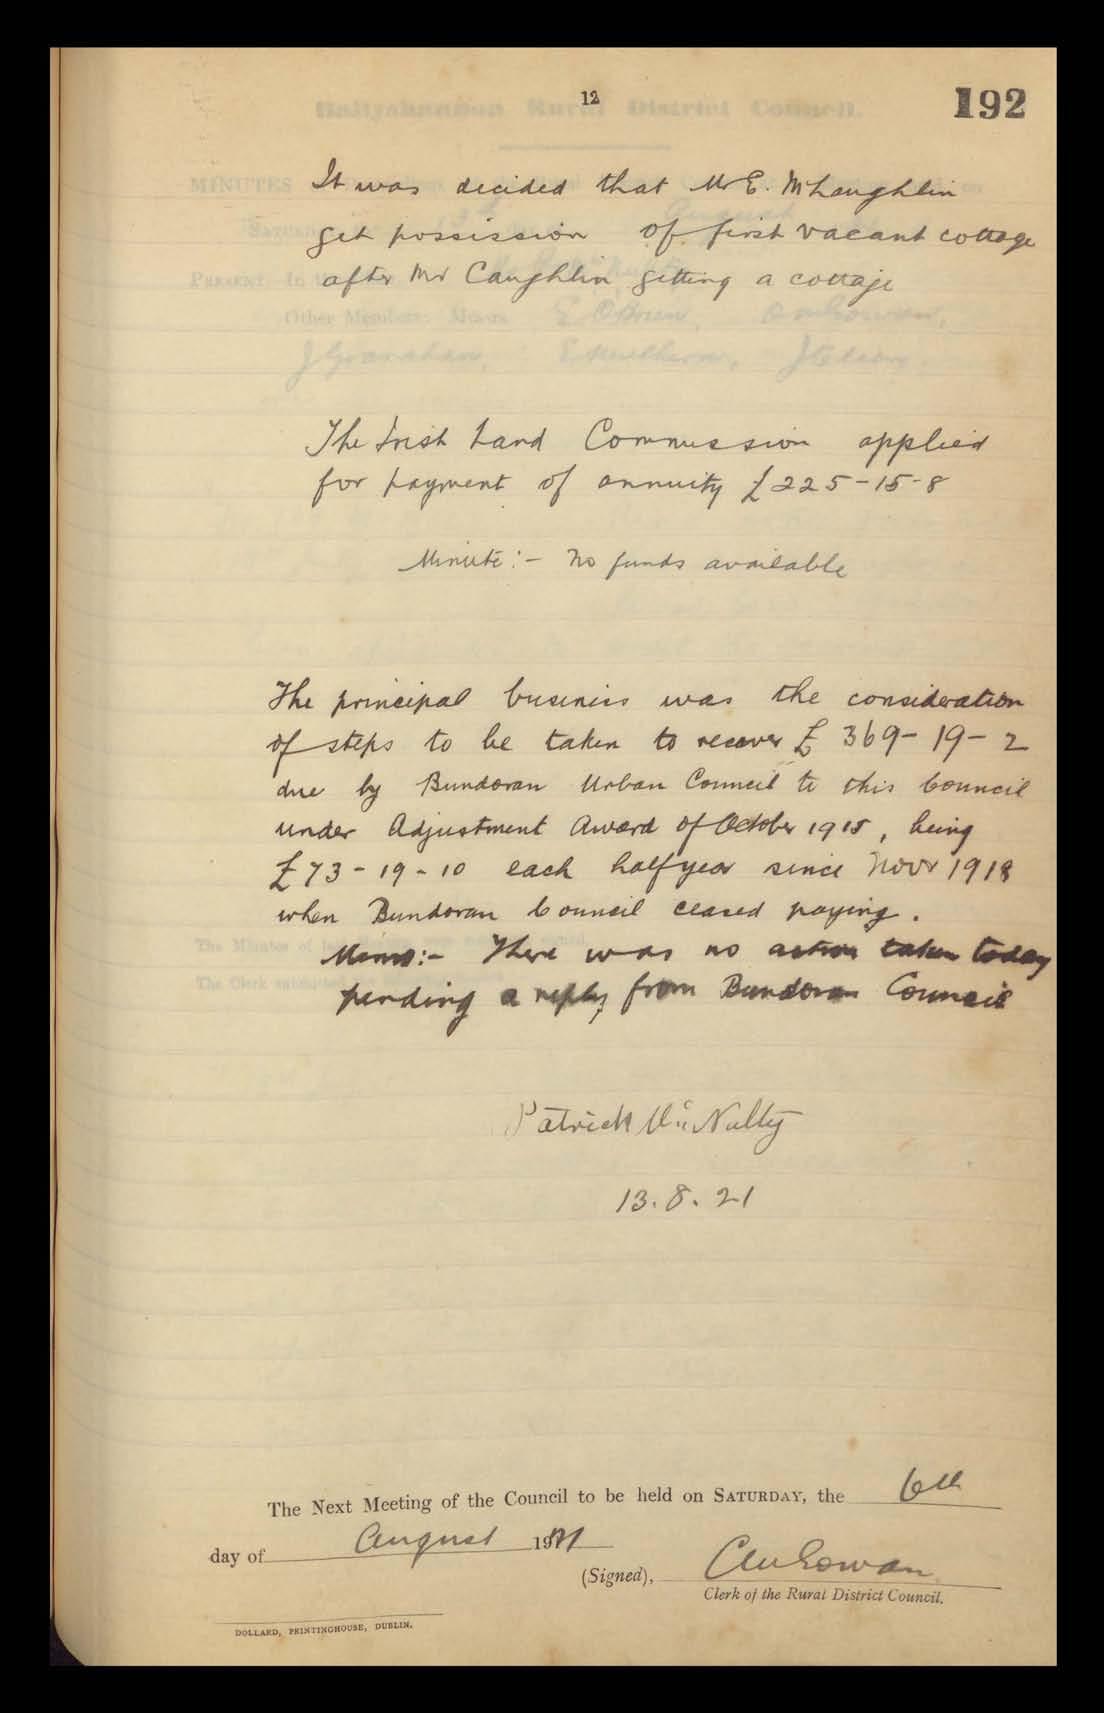 12
192
It was decided that Mr E. McLaughlin
get possission of first vacant cottage
after Mr Caughlin getting a cottage
The Irish Land Commission applied
for payment of annuity £225-15-8
Minute:- No funds available
The principal business was the consideration
of steps to be taken to recover £369-19-2
due by Bundoran Urban Council to this Council
under Adjustment Award of October 1915, being
£73-19-10 each half year since Novr 1918
when Bundoran Council ceased paying.
There was no action taken today
pending a reply from Bundoran Council
Patrick McNulty
13.8.21
The Next Meeting of the Council to be held on SATURDAY, the 6th
day of August 1921
(Signed),
Clerk of the Rural District Council.
DOLLARD, PRINTINGHOUSE, DUBLIN.